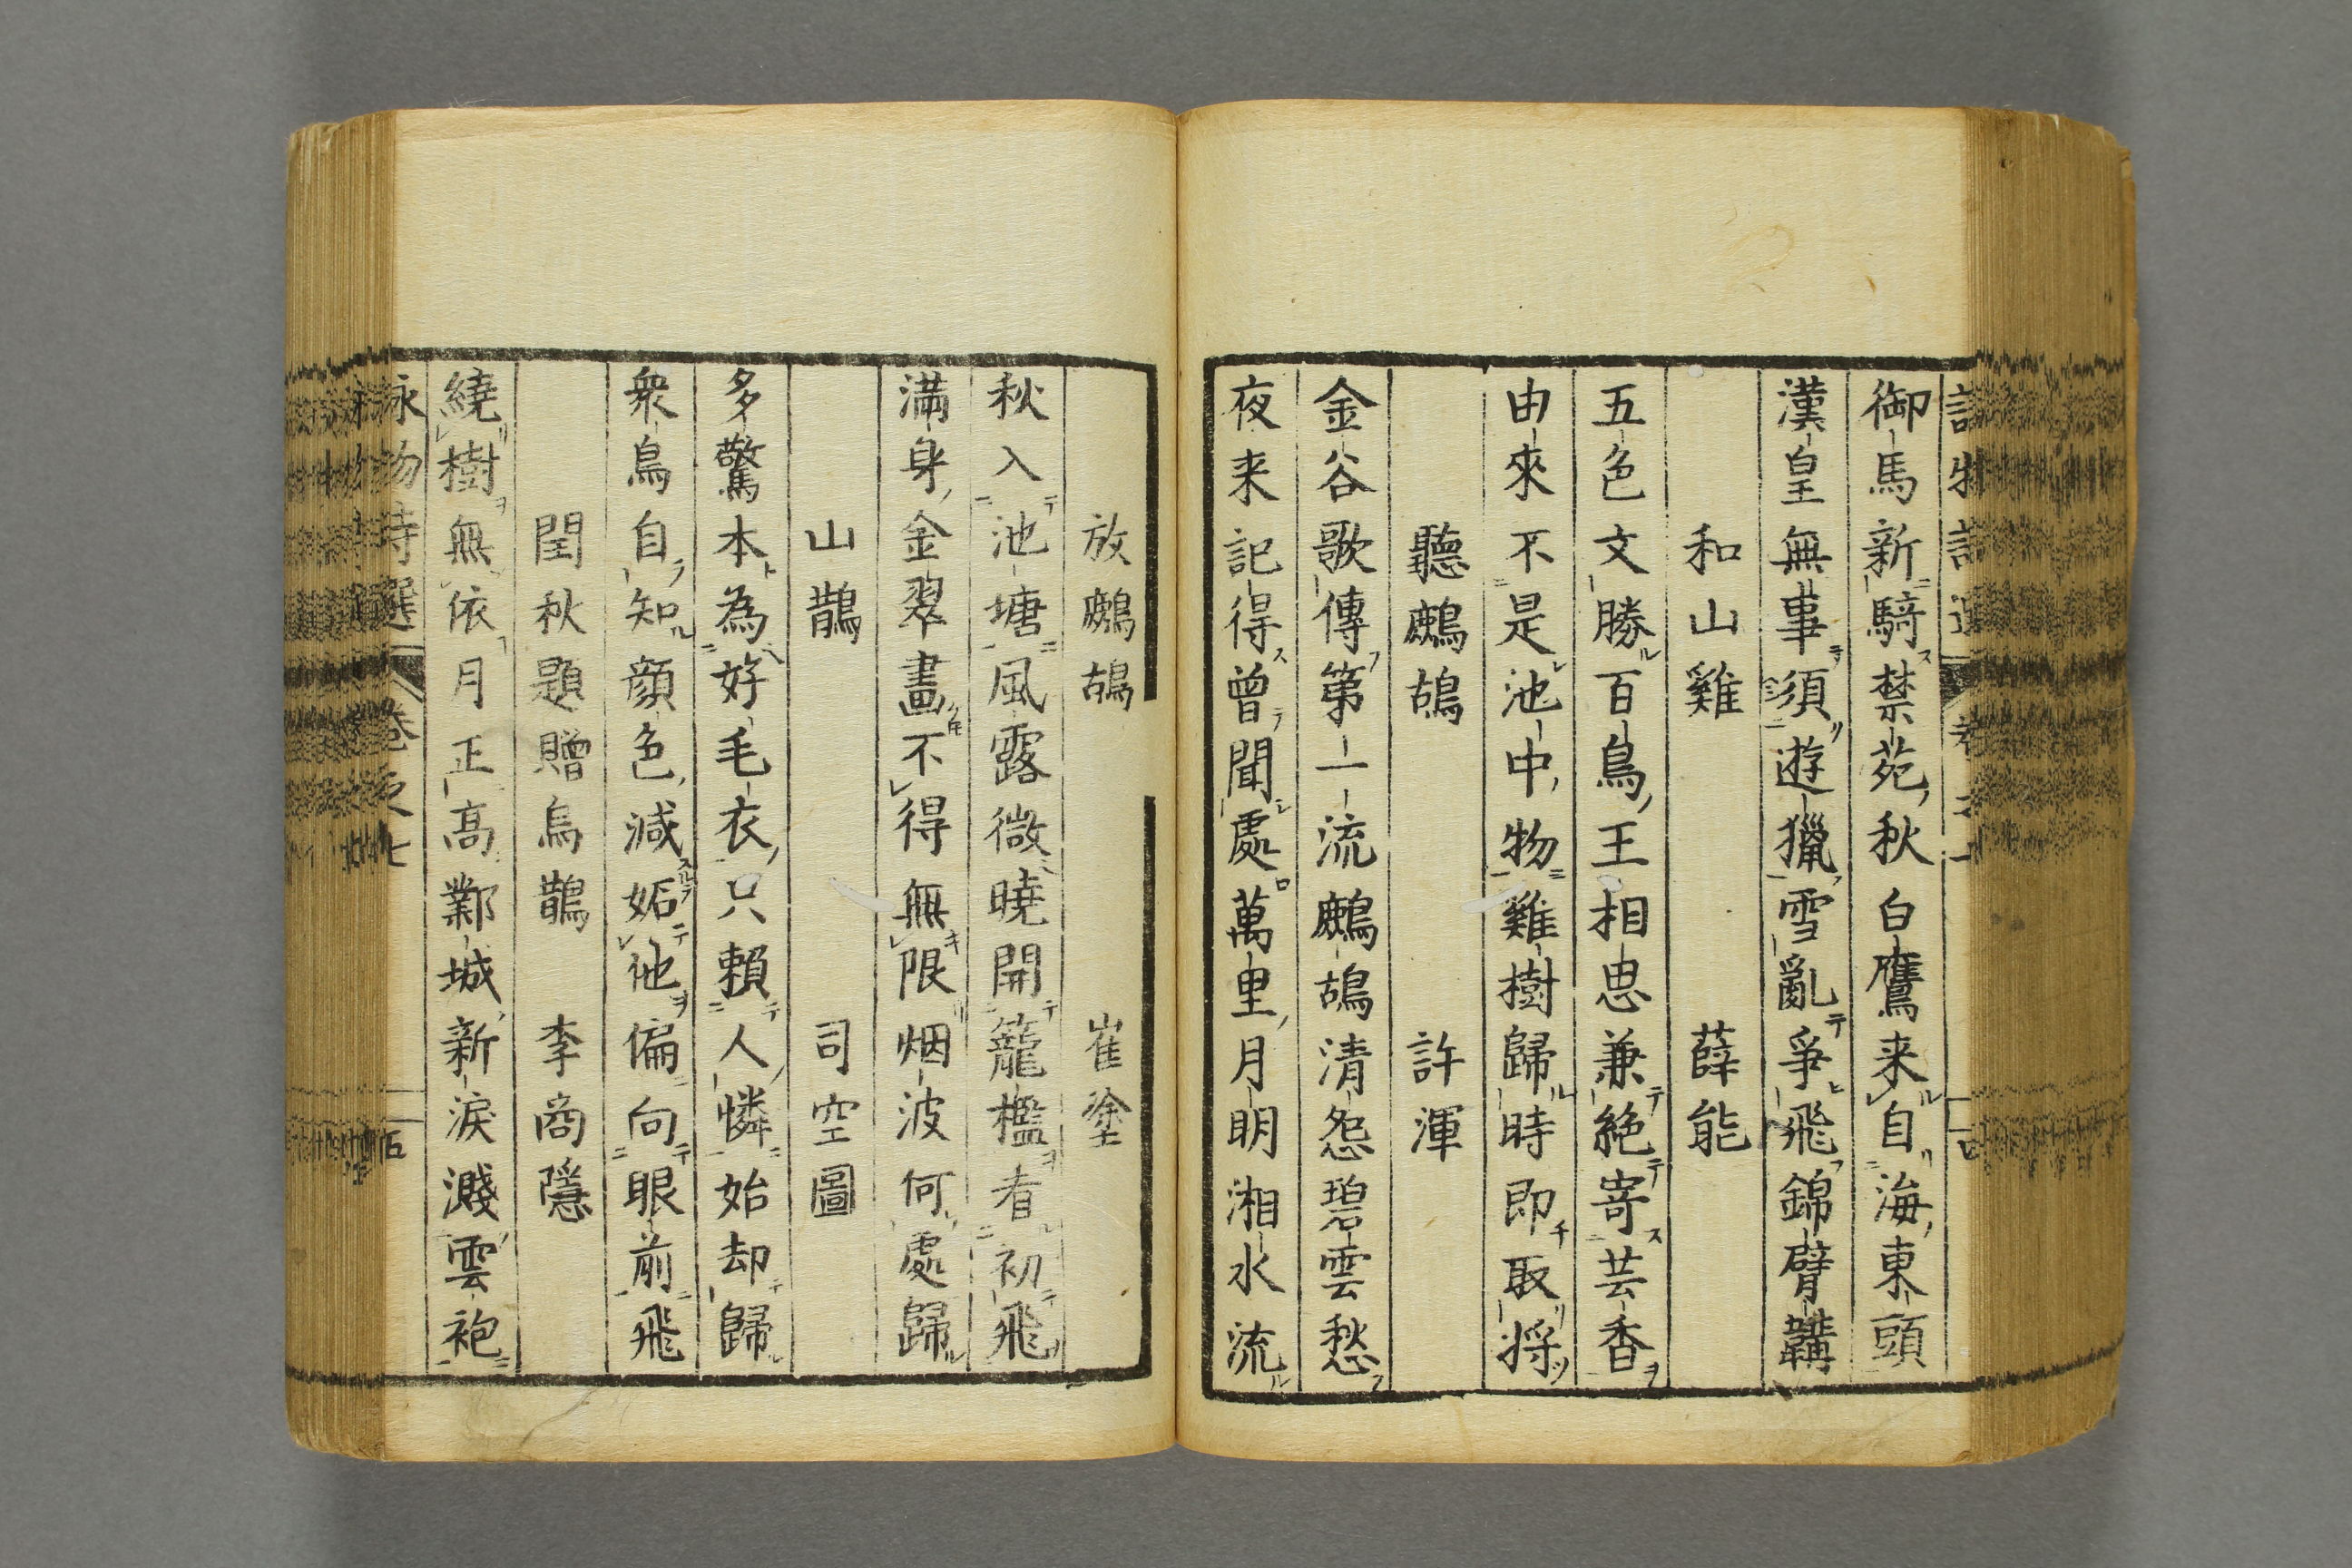 御馬新騎禁苑秋白鷹来自海東頭
漢皇無事須遊獵雪亂爭飛錦臂韝
和山雞 薛能
五色文勝百鳥王相思兼絶寄芸香
由來不是池中物雞樹歸時即取将
聽鷓鴣 許渾
金谷歌傳第一流鷓鴣清怨碧雲愁
夜来記得曾聞處萬里月明湘水流
放鷓鴣 崔塗
秋入池塘風露微曉開籠檻看初飛
満身金翠畫不得無限烟波何處歸
山鵲 司空圖
多驚本為好毛衣只賴人憐始却歸
衆鳥自知顔色減妬他偏向眼前飛
閏秋題贈烏鵲 李商隱
繞樹無依月正高鄴城新淚濺雲袍
詠物詩選 卷之七